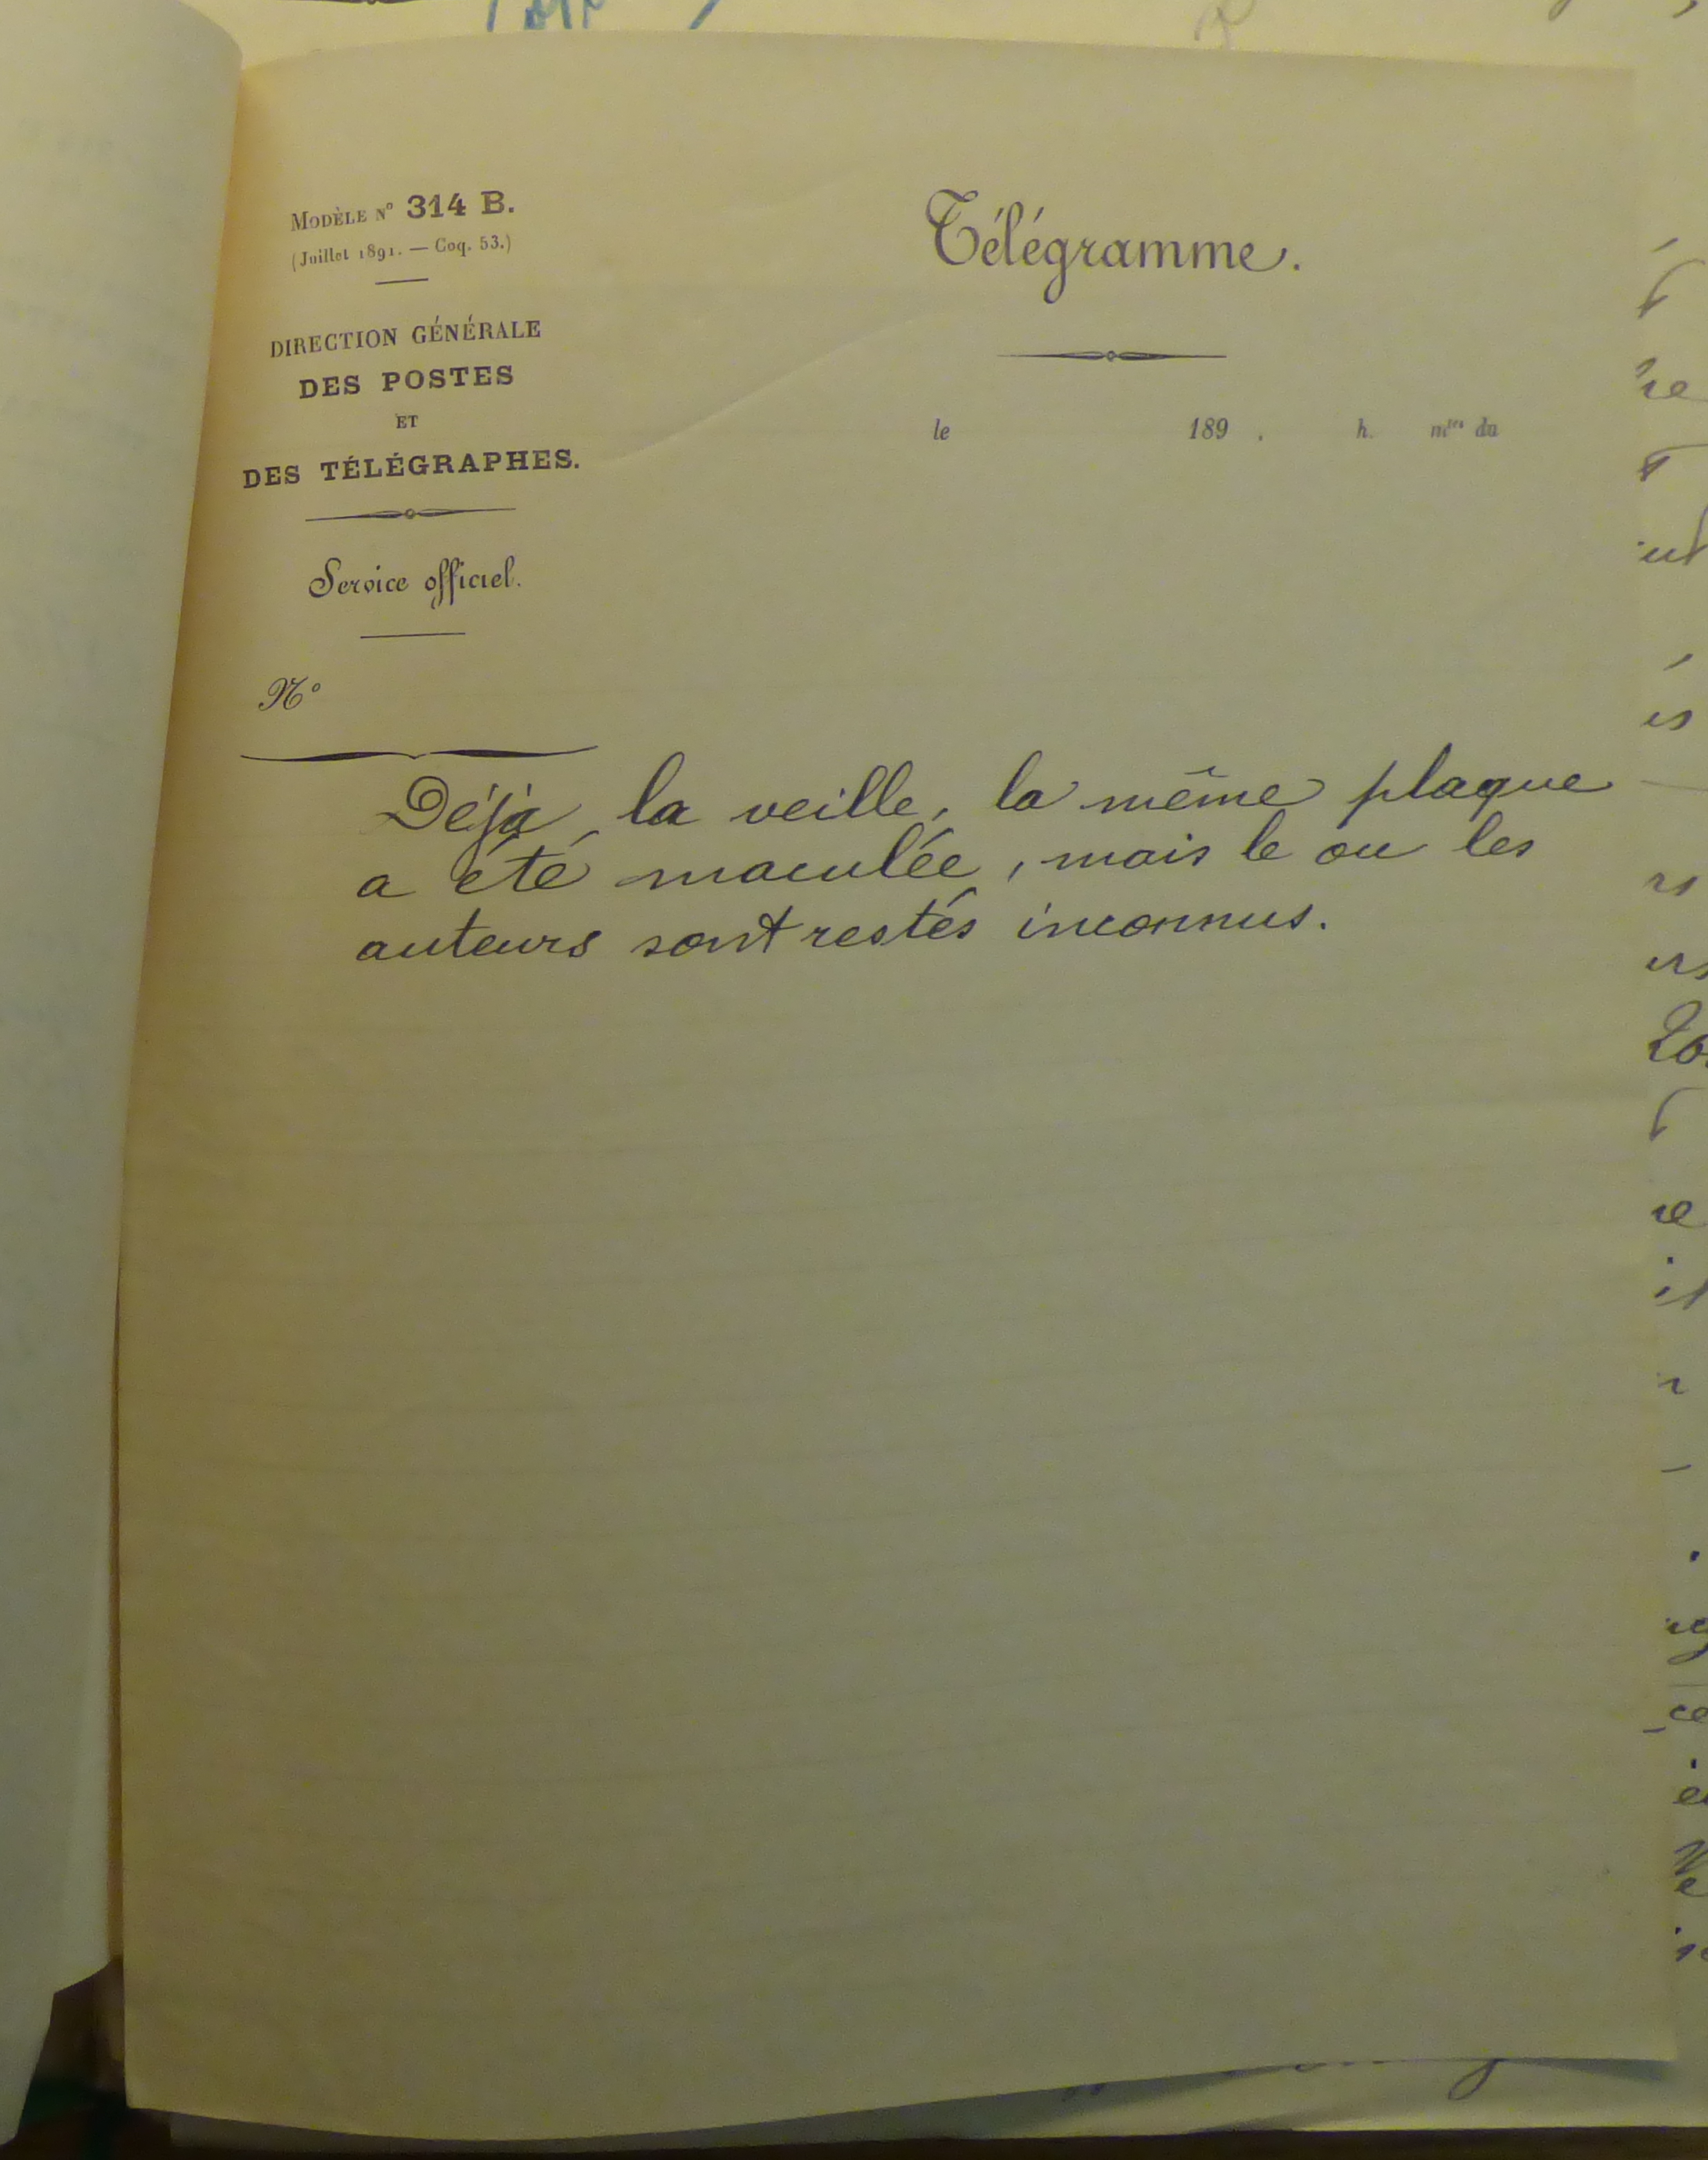 Modèle n° 314 B.
(Juillet 1891. — Coq. 53.)
DIRECTION GÉNÉRALE
DES POSTES
ET
DES TÉLÉGRAPHES.
Service officiel.
N°
Télégramme.
le 189 . h. mtes du
Déjà, la veille, la même plaque
a été maculée, mais le ou les
auteurs sont restés inconnus.